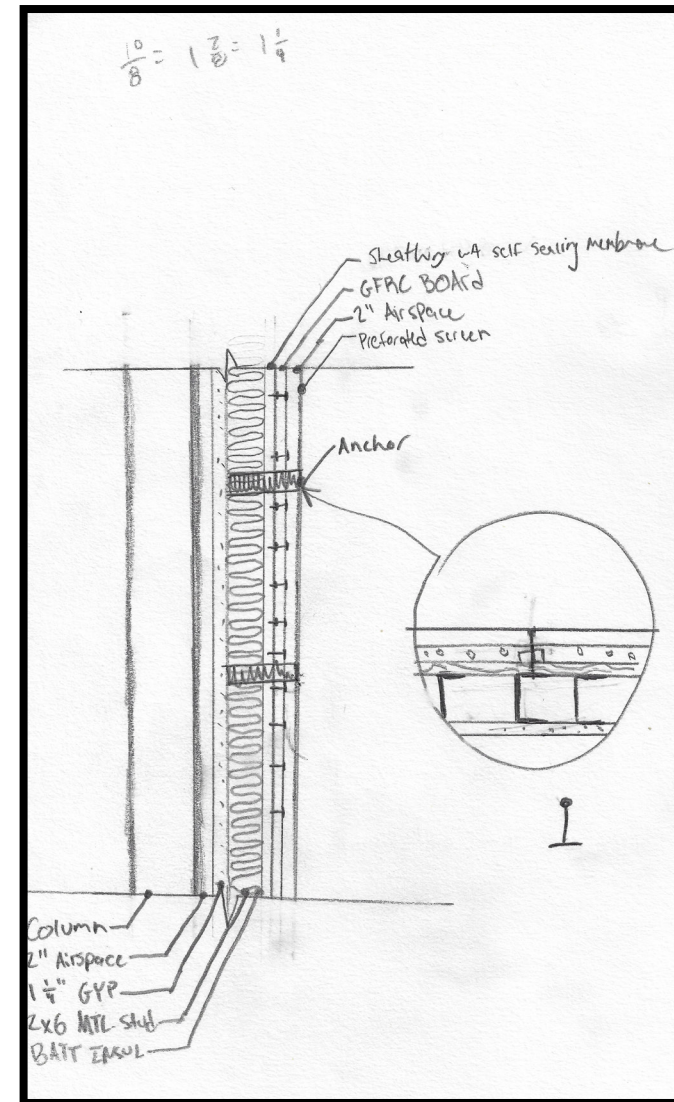 10/8 = 1 2/8 = 1 1/4
Sheathing w/ self sealing membrane
GFRC BOARD
2" Airspace
Preforated screen
Anchor
Column
2" Airspace
1 1/4" GYP
2x6 MTL Stud
BATT INSUL